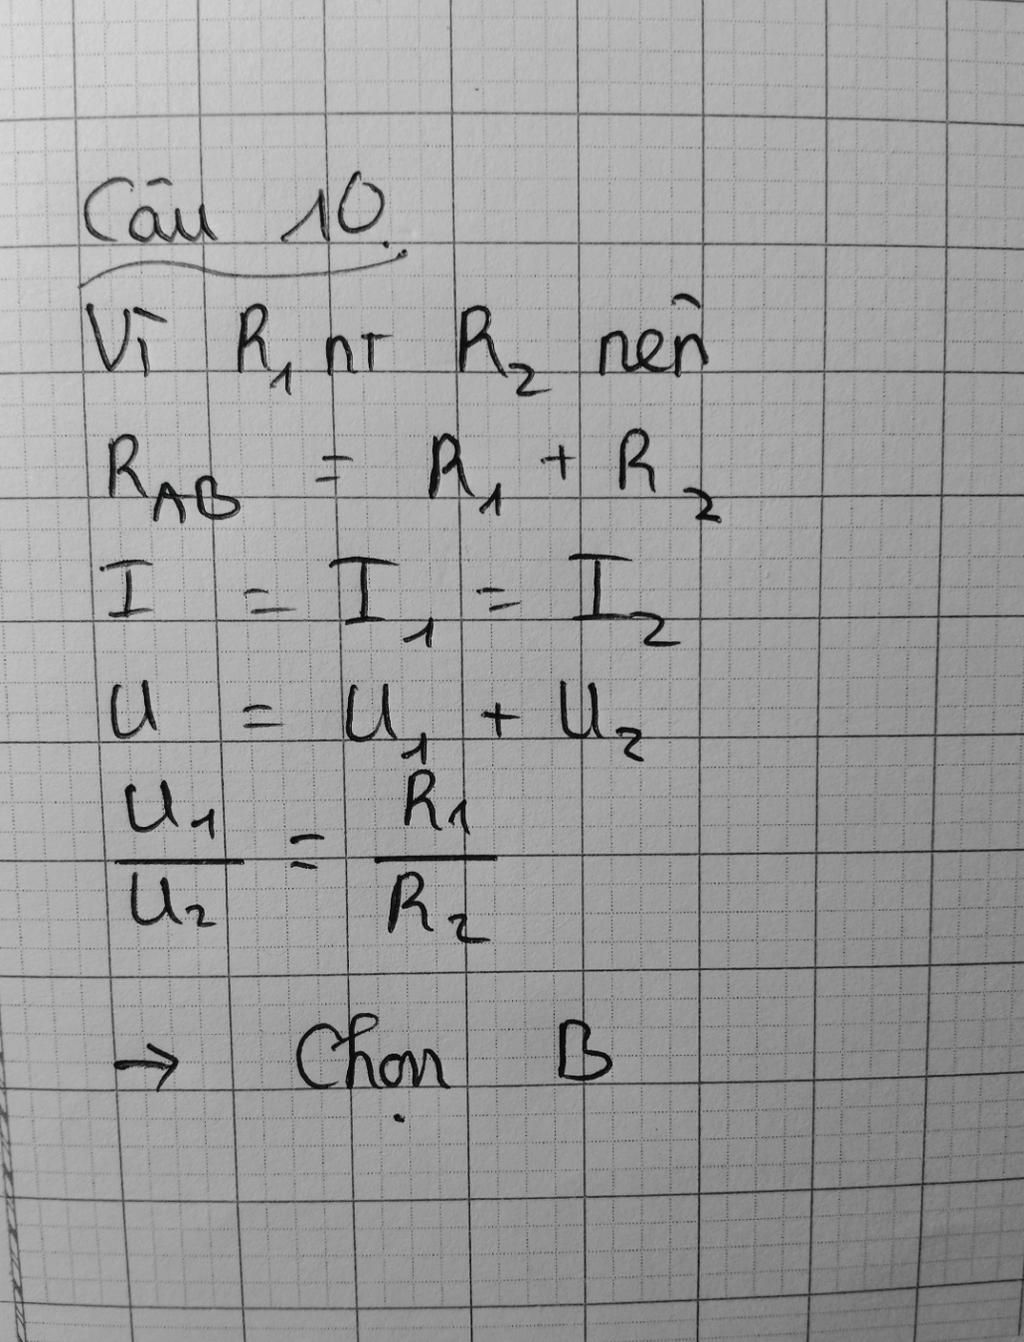 Câu 10.
Vì R₁ nt R₂ nên
R_AB = R₁ + R₂
I = I₁ = I₂
U = U₁ + U₂
U₁/U₂ = R₁/R₂
→ Chọn B